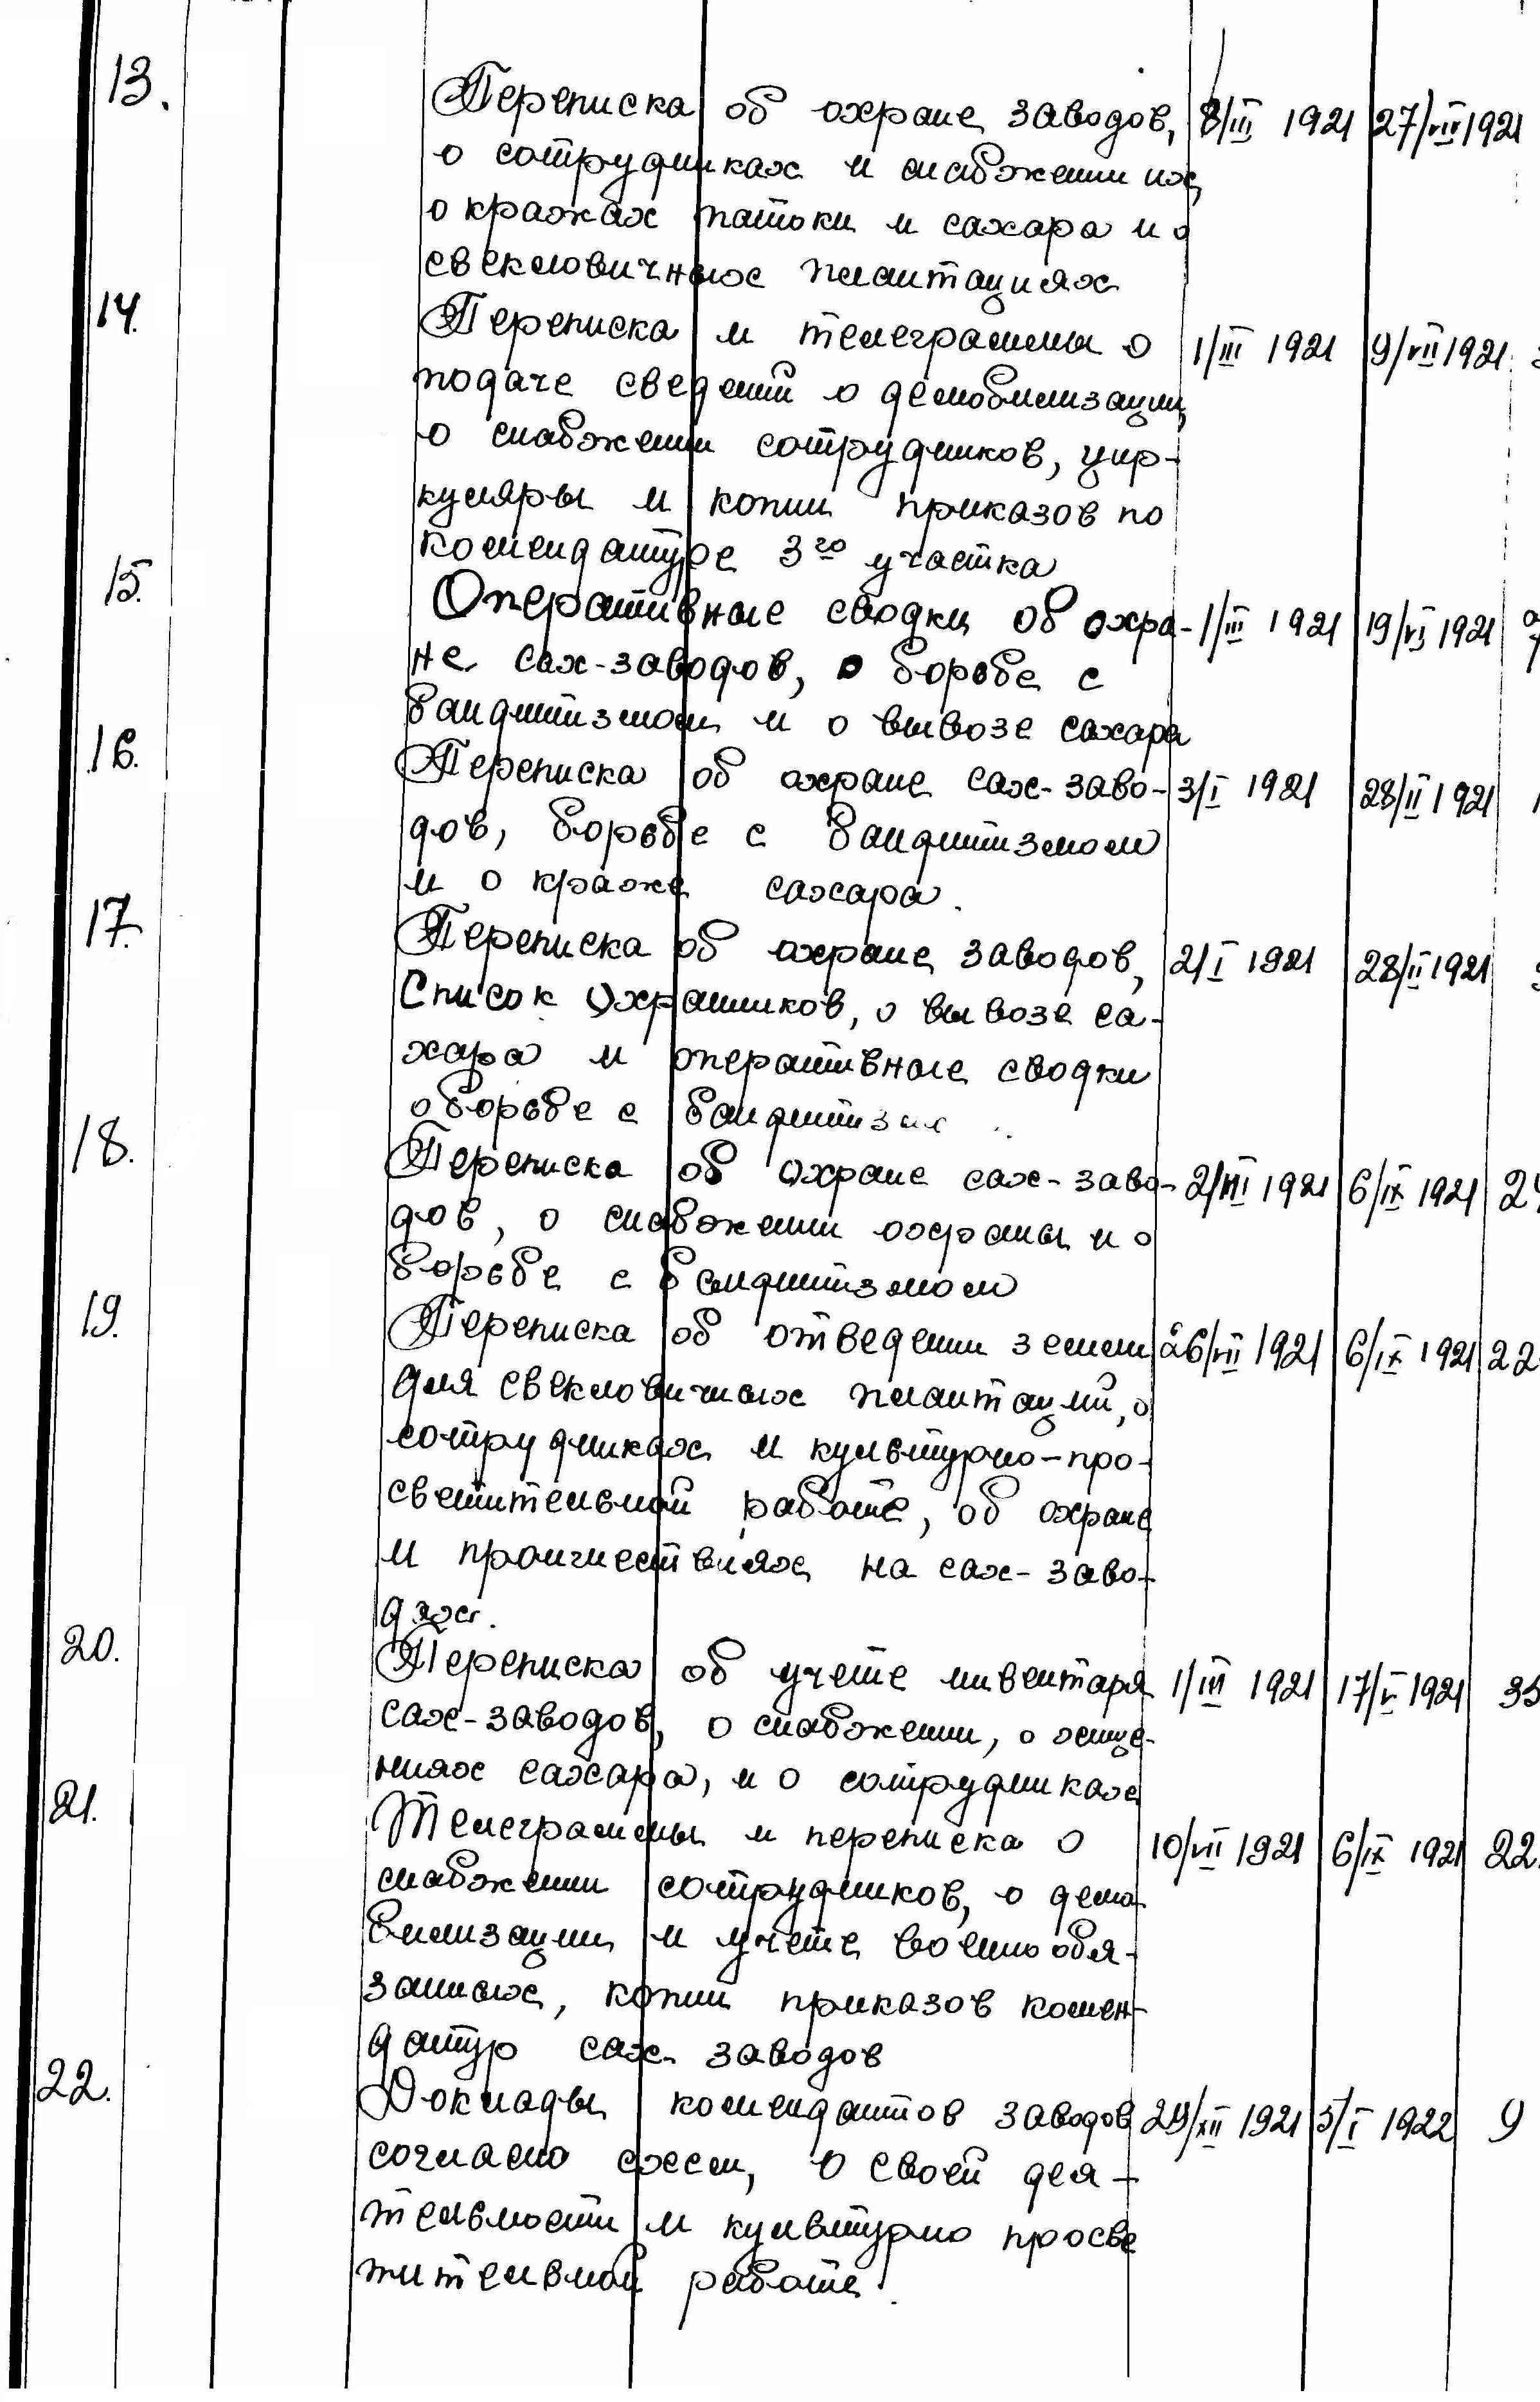 13. Переписка об охране заводов, 8/III 1921 27/VIII 1921
о сотрудниках и снабжении их,
о кражах патоки и сахара и о
свекловичных плантациях
14. Переписка и телеграммы о 1/III 1921 9/VII 1921
подаче сведений о демобилизации,
о снабжении сотрудников, цир-
куляры и копии приказов по
комендатуре 3го участка
15. Оперативные сводки об охра- 1/III 1921 19/VI 1921
не сах-заводов, о борьбе с
бандитизмом и о вывозе сахара
16. Переписка об охране сах-заво- 3/I 1921 28/II 1921
дов, борьбе с бандитизмом
и о краже сахара.
17. Переписка об охране заводов, 2/I 1921 28/II 1921
Список охранников, о вывозе са-
хара и оперативные сводки
о борьбе с
18. Переписка об охране сах-заво- 6/IX 1921
дов, о снабжении охраны и о
борьбе с бандитизмом
19. Переписка об отведении земли 26/VII 1921 6/IX 1921 22
для свекловичных плантаций, о
сотрудниках и культурно-про-
светительной работе, об охране
и проишествиях на сах-заво-
дах.
20. Переписка об учете инвентаря 1/III 1921 17/V 1921
сах-заводов, о снабжении, о
сахара, и о сотрудниках
21. Телеграммы и переписка о 10/VII 1921 6/IX 1921 22
снабжении сотрудников, о демо
билизации и учете военнообя-
занных, копии приказов комен-
датур сах. заводов
22. Доклады комендантов заводов 29/XII 1921 5/I 1922 9
согласно схем, о своей дея-
тельности и культурно просве
тительной работе.